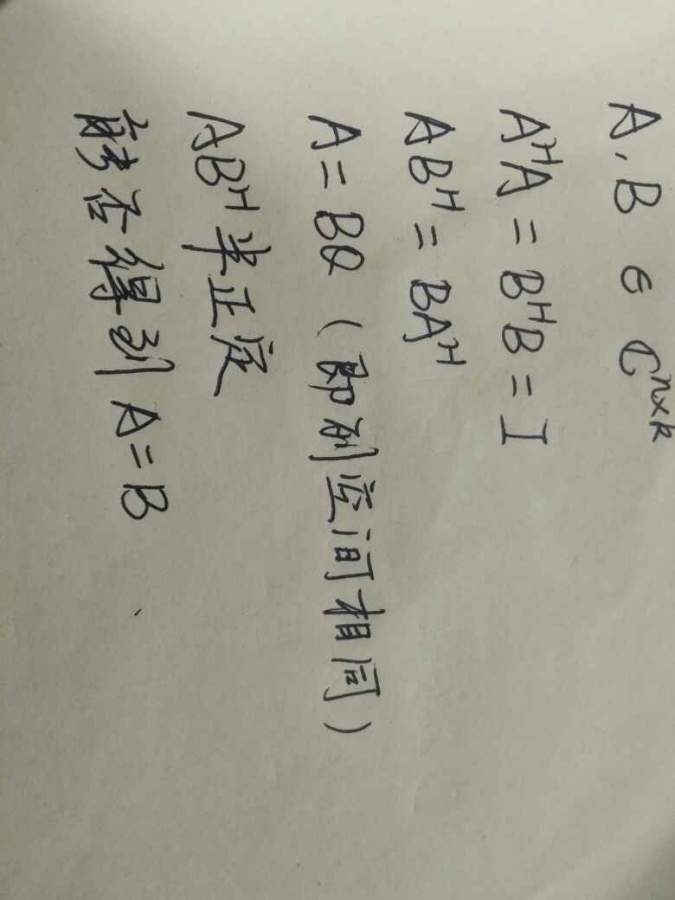 A, B ∈ ℂⁿˣᵏ
AᴴA = BᴴB = I
ABᴴ = BAᴴ
A = BQ (即列空间相同)
ABᴴ 半正定
能否得到 A = B